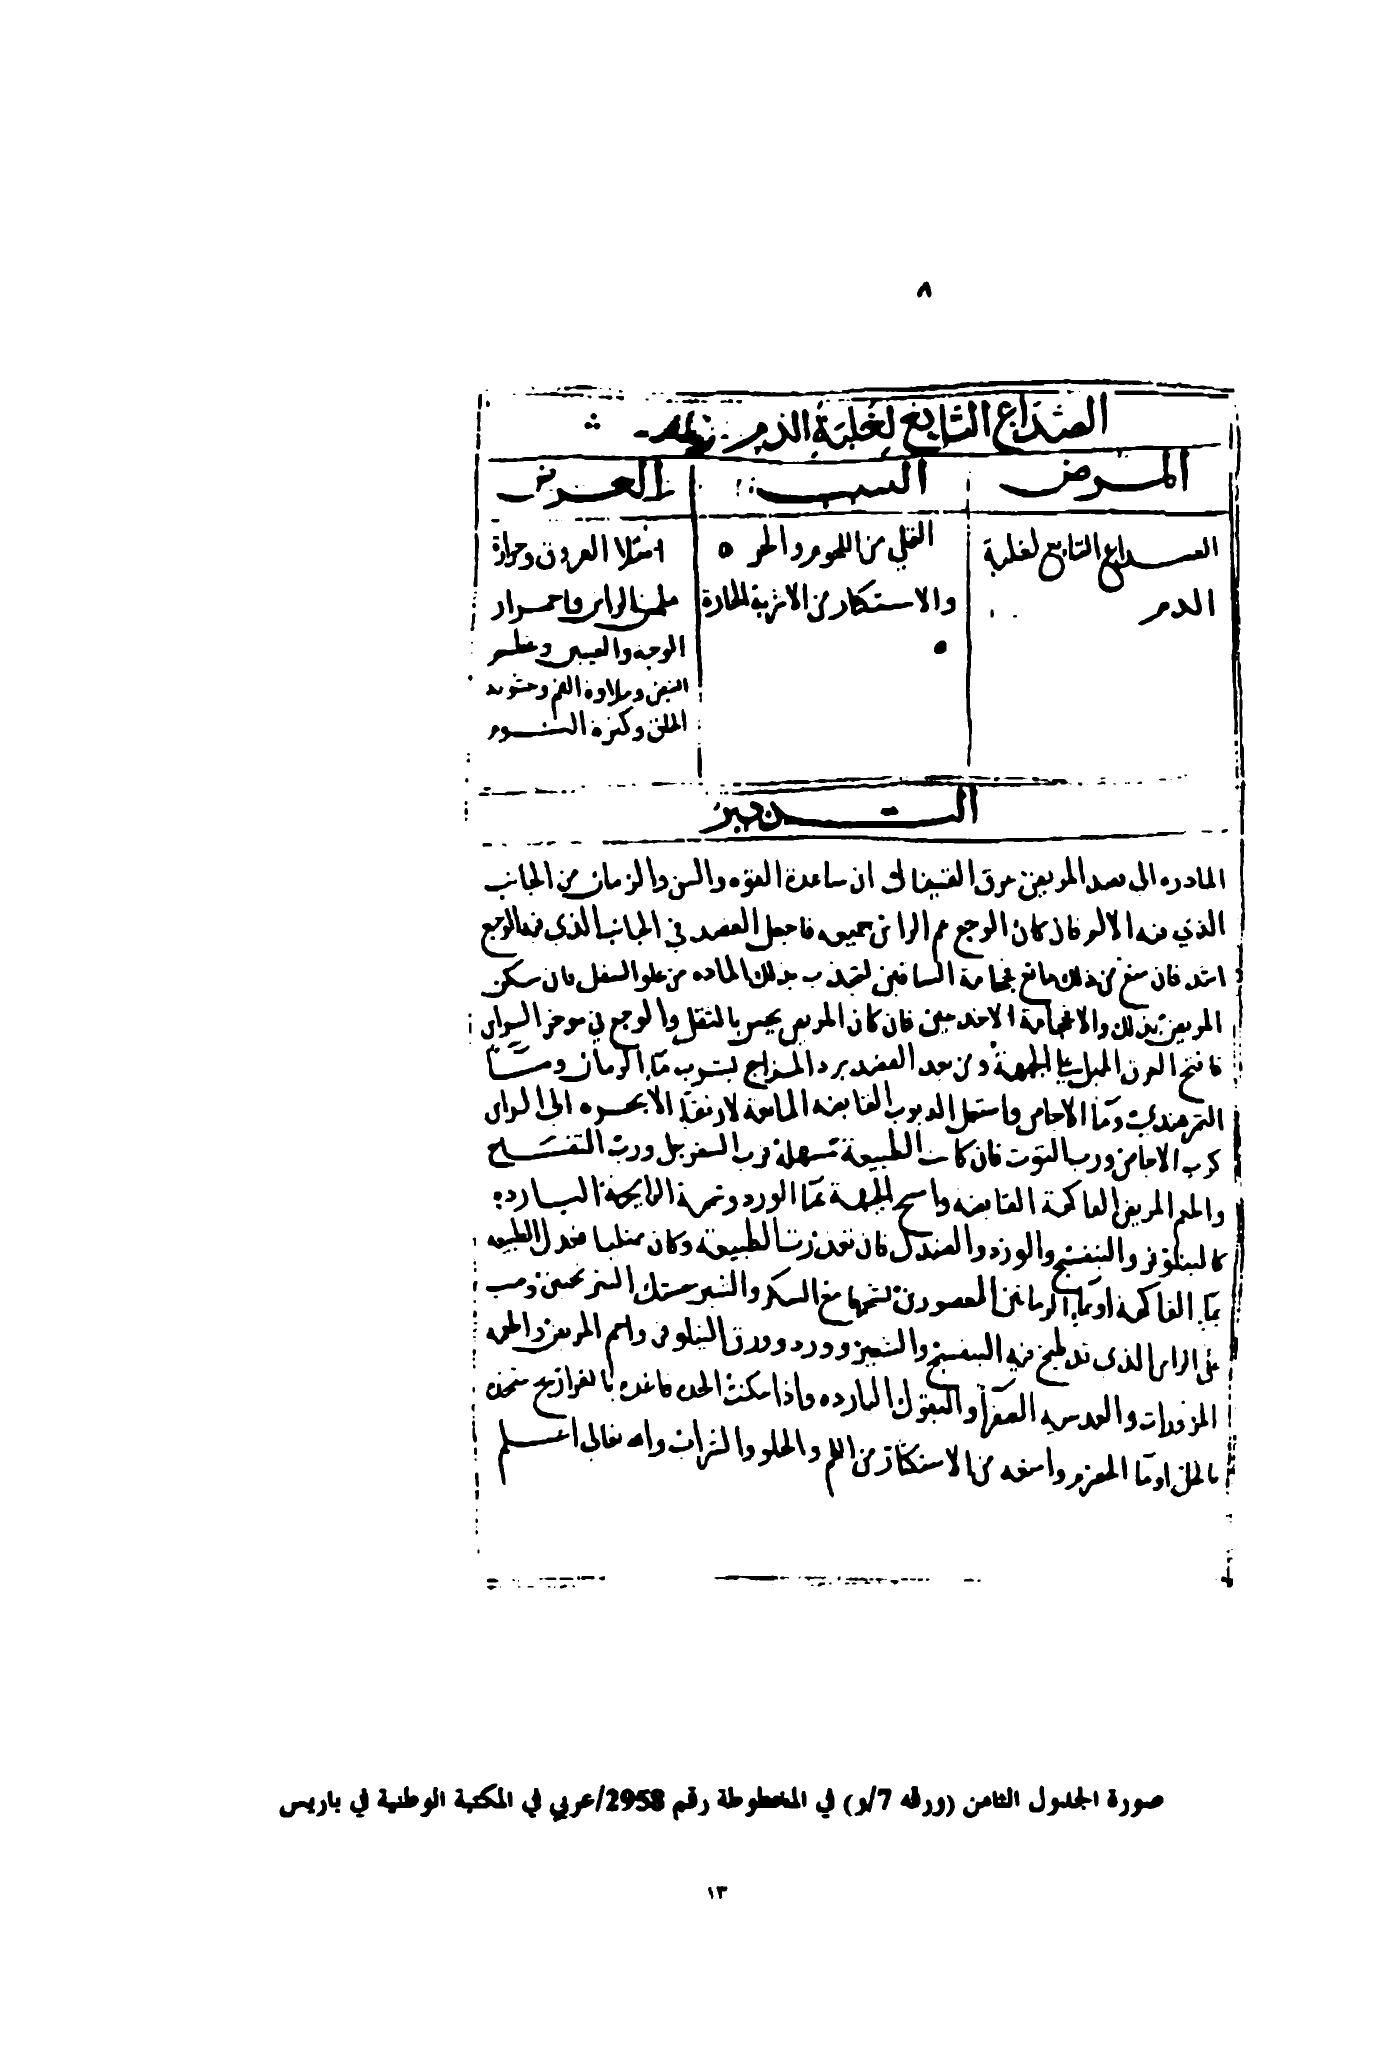 ٨
الصداع التابع لغلبة الدم
المرض السبب العرض
الصداع التابع لغلبة
الدم
التملي من اللحوم والخمر
والاستكثار من الاشربة الحارة
امتلا العروق وحرارة
ملمس الراس واحمرار
الوجه والعينين وعظم
النبض وحلاوة الفم وخشونة
الحلق وكثرة النوم
التدبير
المبادره الى فصد المريض عرق القيفال ان ساعدة القوه والسن والزمان من الجانب
الذي فيه الالم فان كان الوجع عم الراس جميعه فاجعل الفصد في الجانب الذي فيه الوجع
اشد فان منع من ذلك مانع فحجامة الساقين لتجذب بذلك الماده من علو السفل فان سكن
المريض بذلك والا فحجامة الاخدعين فان كان المريض يحس بالثقل والوجع في موخر الراس
فافتح العرق الذي في الجبهة ومن بعد الفصد برد المزاج بشراب ما الرمان وشراب
التمرهندي وما الاجاص واستعمل الربوب القابضه المانعة لارتقا الابخره الى الراس
كرب الاجاص ورب التوت فان كانت الطبيعة مسهلة فرب السفرجل ورب التفاح
واطعم المريض الفاكهة القابضه وامسح الجبهة بما الورد وشمه الرايحة البارده
كالنيلوفر والبنفسج والورد والصندل فان تعذرت الطبيعه وكان ممتليا فعدل الطبيعه
بما الفاكهة او بما الرمانين المعصورين بشحمهما مع السكر والشيرخشك الترنجبين وصب
على الراس الذي قد طبخ فيه البنفسج والشعير وورد وورق النيلوفر واحم المريض واطعمه
المزورات والعدسيه الصفرا والبقول البارده واذا سكنت الحده فاغذه بالفراريج متخذه
بالخل او ما الحصرم وامنعه من الاستكثار من اللحم والحلو والشراب والله تعالى اعلم
صورة الجدول الثامن (ورقه 7/و) في المخطوطة رقم 2958/عربي في المكتبة الوطنية في باريس
١٣